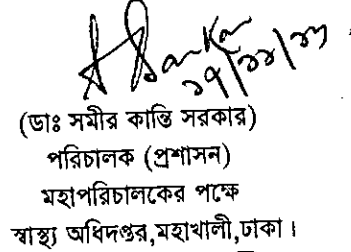 ২৭/১১/১৭
(ডাঃ সমীর কান্তি সরকার)
পরিচালক (প্রশাসন)
মহাপরিচালকের পক্ষে
স্বাস্থ্য অধিদপ্তর,মহাখালী,ঢাকা।